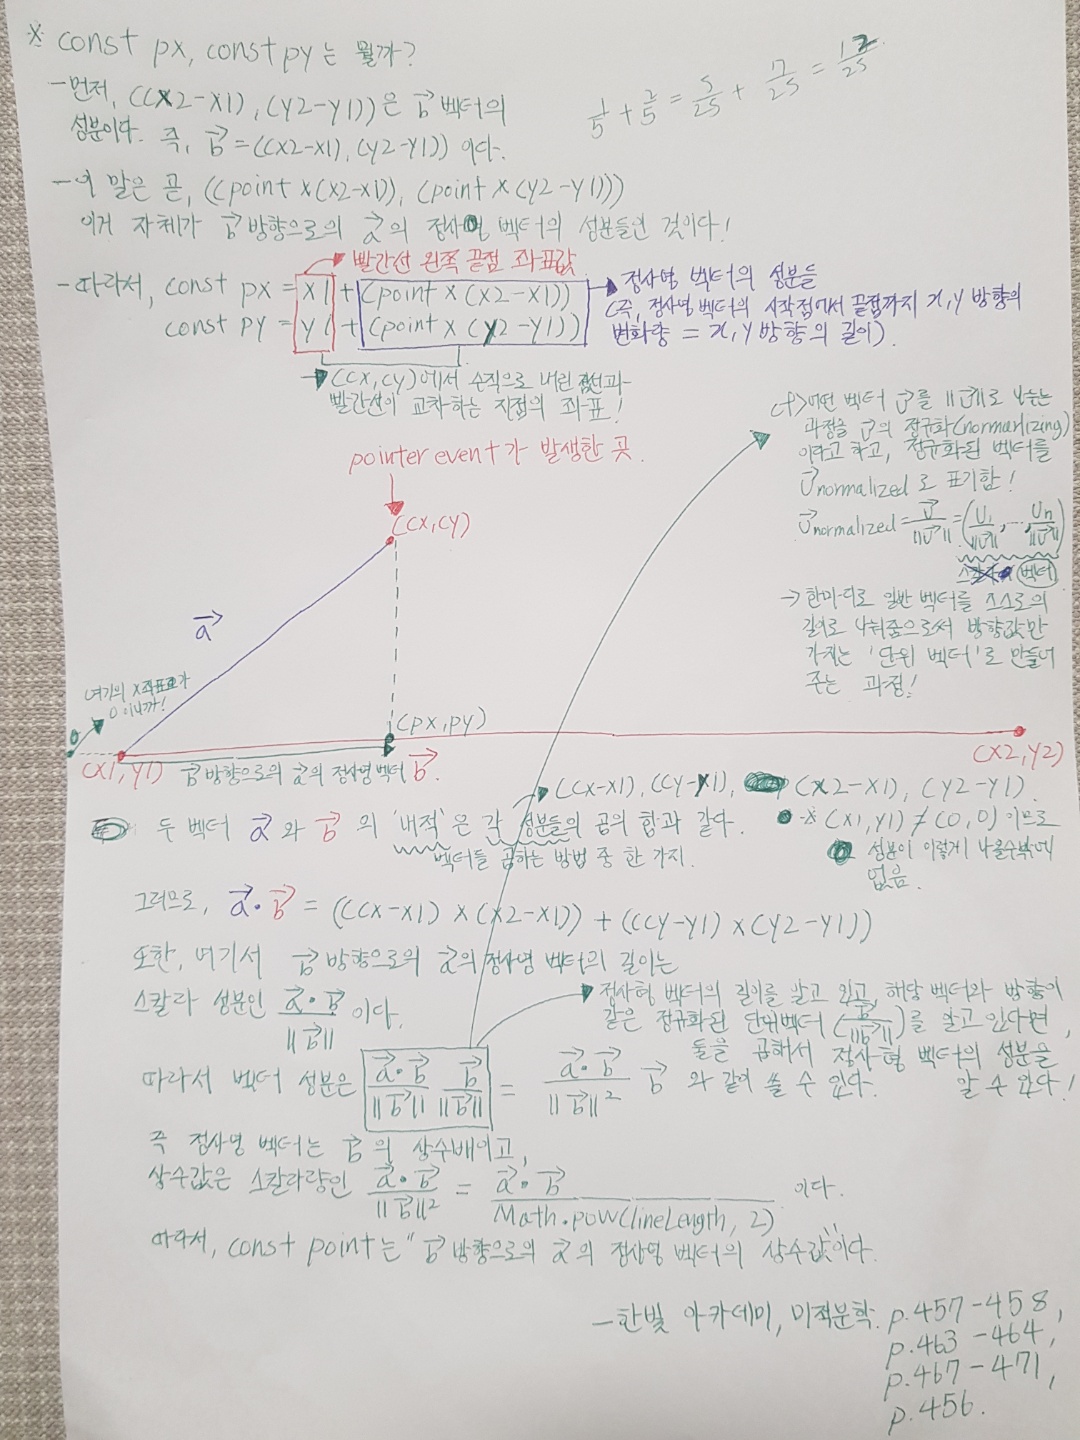 * const px, const py는 뭘까?
1/5 + 2/5 = 5/25 + 7/25 = 12/25
- 먼저, ((x2-x1), (y2-y1))은 b→ 벡터의
성분이다. 즉, b→ = ((x2-x1), (y2-y1)) 이다.
- 이 말은 곧, ((point × (x2-x1)), (point × (y2-y1)))
이거 자체가 b→ 방향으로의 a→의 정사영 벡터의 성분들인 것이다!
빨간선 왼쪽 끝점 좌표값
- 따라서, const px = x1 + (point × (x2-x1))
const py = y1 + (point × (y2-y1))
정사영 벡터의 성분들
(즉, 정사영 벡터의 시작점에서 끝점까지 x, y 방향의
변화량 = x, y 방향의 길이).
(cx, cy)에서 수직으로 내린 점선과
빨간선이 교차하는 지점의 좌표!
pointer event가 발생한 곳.
(cx, cy)
cf) 어떤 벡터 U→를 ||U→||로 나누는
과정을 U→의 정규화(normarlizing)
이라고 하고, 정규화된 벡터를
U→normalized 로 표기함!
U→normalized = U→/||U→|| = (U1/||U→||, ..., Un/||U→||)
벡터
→ 한마디로 일반 벡터를 스스로의
길이로 나눠줌으로써 방향값만
가지는 '단위 벡터'로 만들어
주는 과정!
a→
여기의 x좌표가
0이니까!
0
(px, py)
(x1, y1)
b→ 방향으로의 a→의 정사영 벡터
b→.
(x2, y2)
((cx-x1), (cy-y1), (x2-x1), (y2-y1).
두 벡터 a→와 b→의 '내적'은 각 성분들의 곱의 합과 같다.
벡터들 곱하는 방법 중 한 가지.
* (x1, y1) ≠ (0, 0) 이므로
성분이 이렇게 나올수밖에
없음.
그러므로, a→·b→ = ((cx-x1) × (x2-x1)) + ((cy-y1) × (y2-y1))
또한, 여기서 b→ 방향으로의 a→의 정사영 벡터의 길이는
스칼라 성분인 a→·b→/||b→|| 이다.
정사형 벡터의 길이를 알고 있고, 해당 벡터와 방향이
같은 정규화된 단위벡터 (b→/||b→||)를 알고 있다면,
둘을 곱해서 정사형 벡터의 성분을
알 수 있다!
따라서 벡터 성분은 a→·b→/||b→|| b→/||b→|| = a→·b→/||b→||² b→ 와 같이 쓸 수 있다.
즉 정사영 벡터는 b→의 상수배이고,
상수값은 스칼라량인 a→·b→/||b→||² = a→·b→/Math.pow(lineLength, 2) 이다.
따라서, const point는 "b→ 방향으로의 a→의 정사영 벡터의 상수값"이다.
- 한빛 아카데미, 미적분학. p.457-458,
p.463-464,
p.467-471,
p.456.